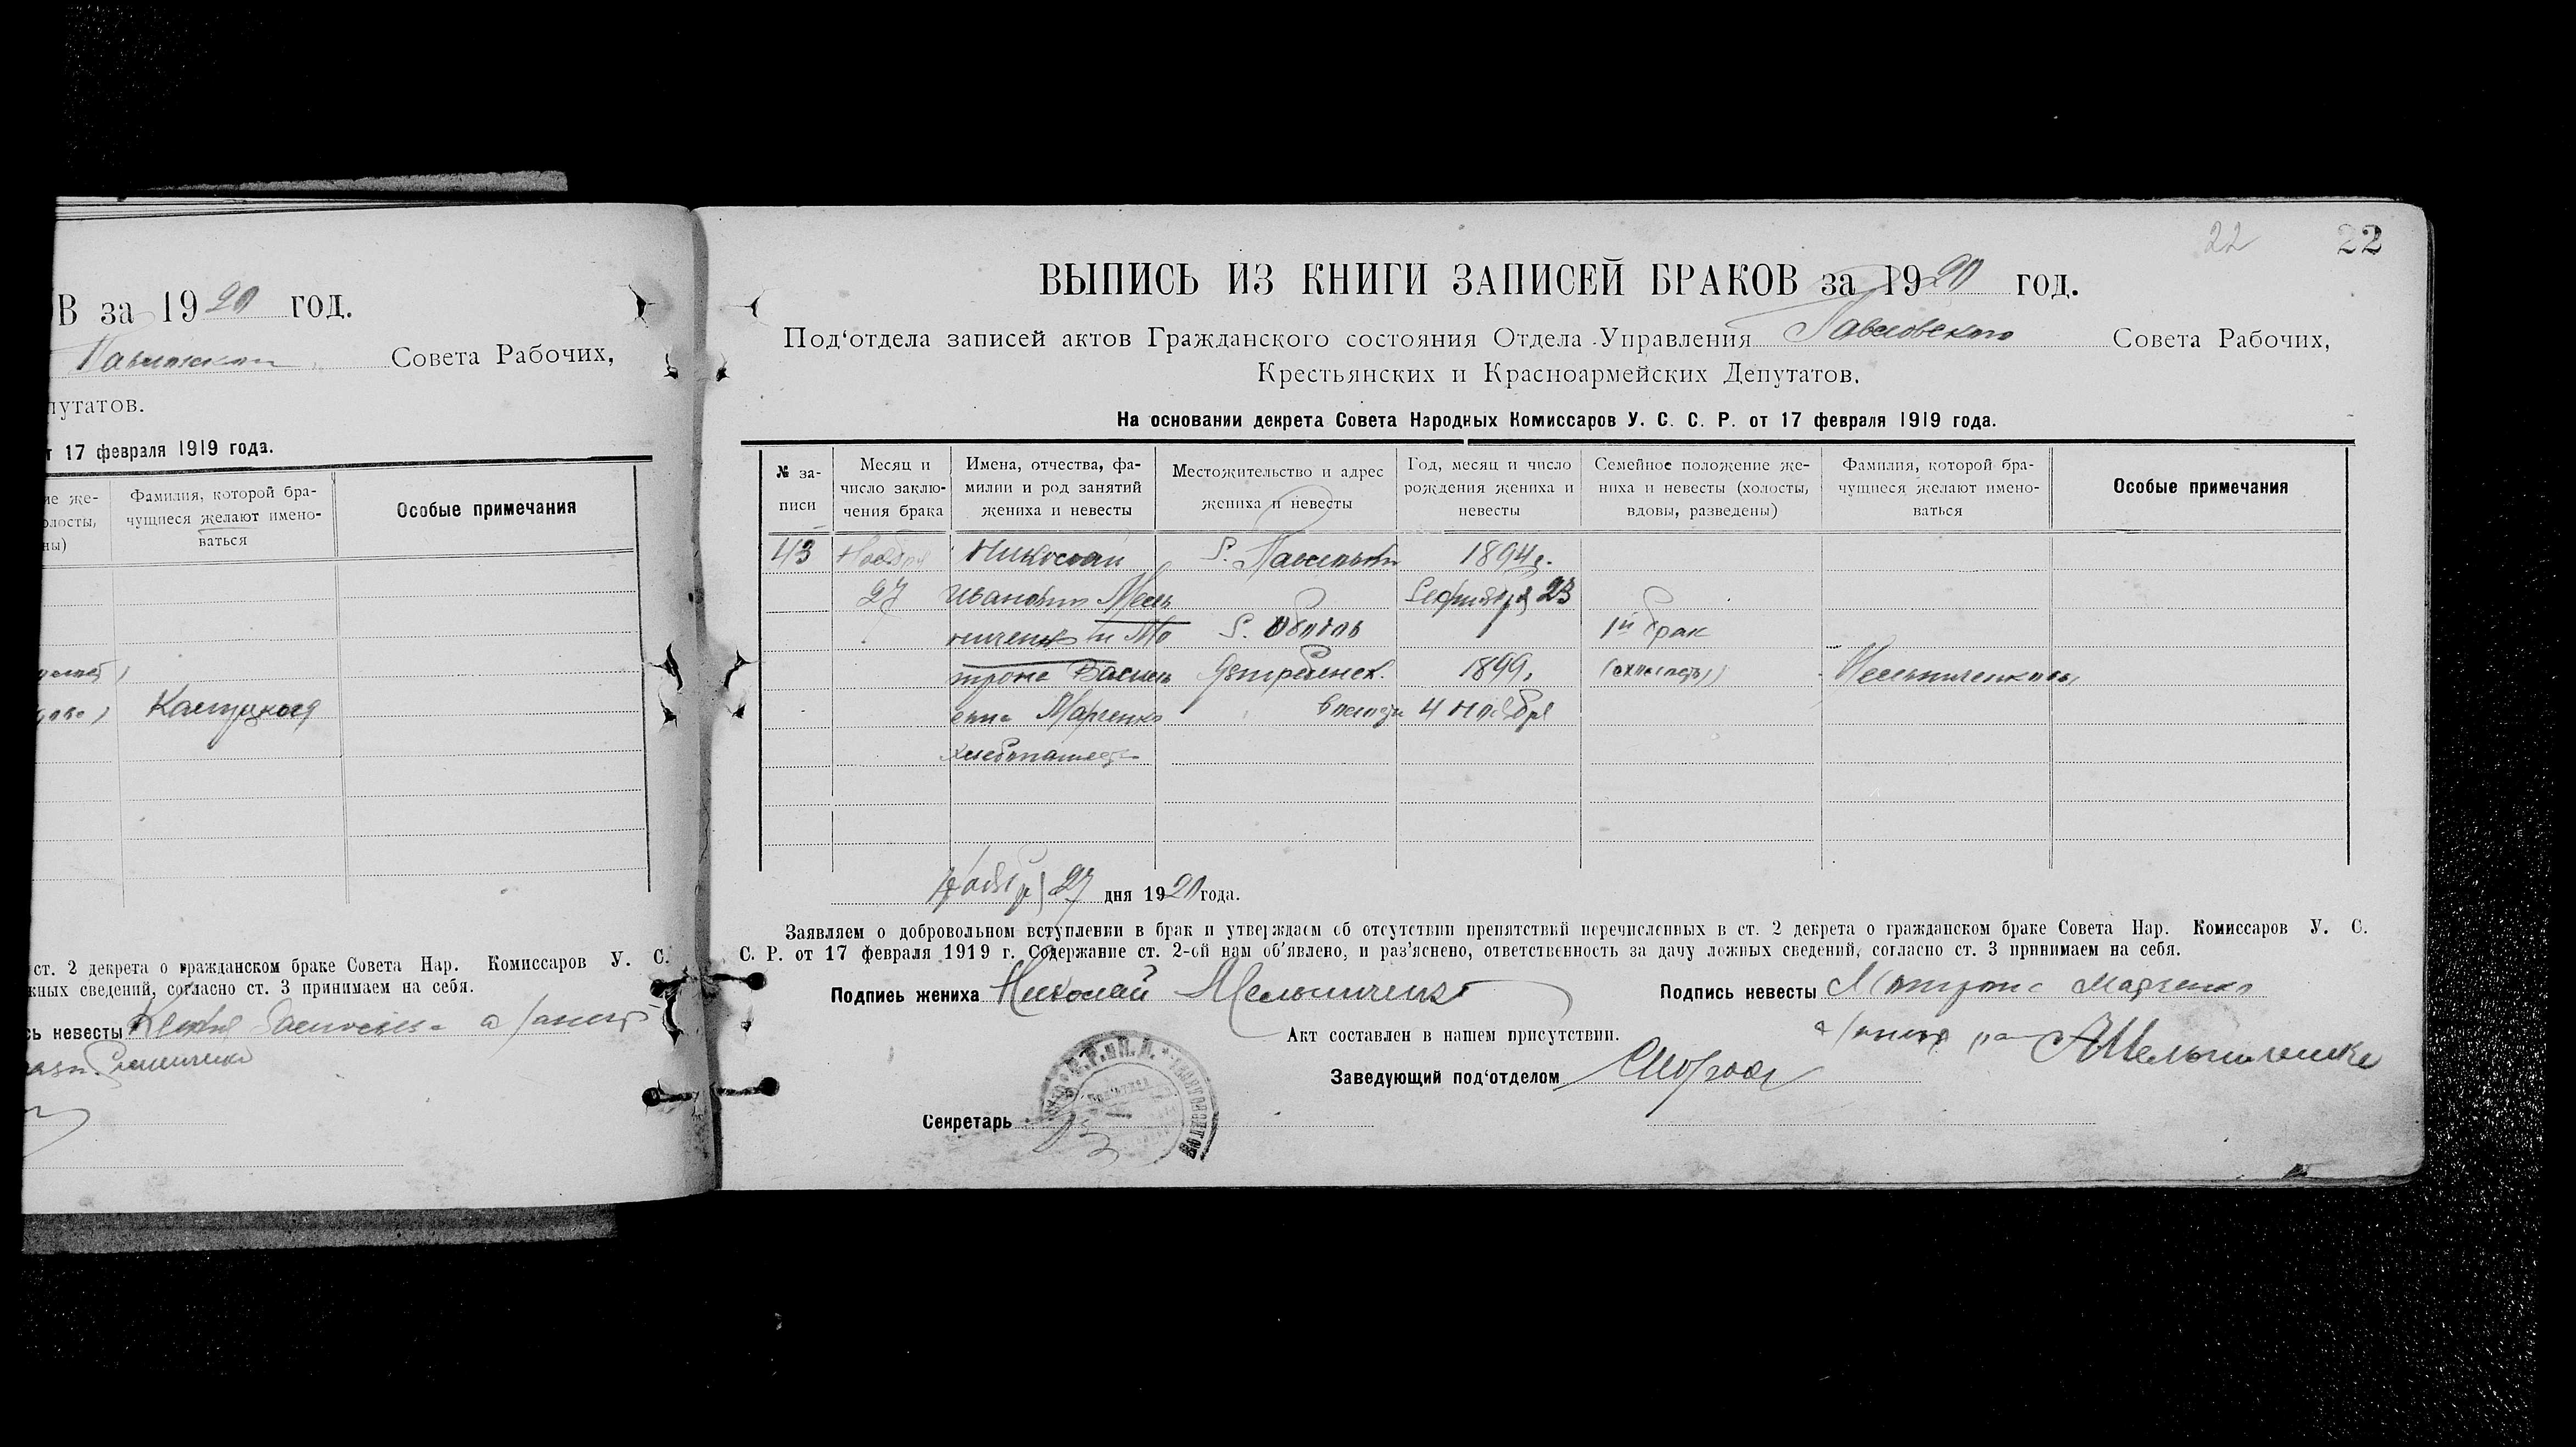 В за 1920 год.
Совета Рабочих,
путатов.
т 17 февраля 1919 года.
ие же-
олосты,
ны)
Фамилия, которой бра-
чущиеся желают имено-
ваться
Особые примечания
ст. 2 декрета о гражданском браке Совета Нар. Комиссаров У. С.
жных сведений, согласно ст. 3 принимаем на себя.
сь невесты
22 22
ВЫПИСЬ ИЗ КНИГИ ЗАПИСЕЙ БРАКОВ за 1920 год.
Под‘отдела записей актов Гражданского состояния Отдела Управления Павловского Совета Рабочих,
Крестьянских и Красноармейских Депутатов.
На основании декрета Совета Народных Комиссаров У. С. С. Р. от 17 февраля 1919 года.
№ за-
писи
Месяц и
число заклю-
чения брака
Имена, отчества, фа-
милии и род занятий
жениха и невесты
Местожительство и адрес
жениха и невесты
Год, месяц и число
рождения жениха и
невесты
Семейное положение же-
ниха и невесты (холосты,
вдовы, разведены)
Фамилия, которой бра-
чущиеся желают имено-
ваться
Особые примечания
43 Ноября Николай С. 1894 г.
27 Иванович Мель 23
ниченко и Ма С. 1й брак
трона Василь 1899,
евна Марченко волости 4 ноября
хлебопашец
Ноября 27 дня 1920 года.
Заявляем о добровольном вступлении в брак и утверждаем об отсутствии препятствий перечисленных в ст. 2 декрета о гражданском браке Совета Нар. Комиссаров У. С.
С. Р. от 17 февраля 1919 г. Содержание ст. 2-ой нам об'явлено, и раз'яснено, ответственность за дачу ложных сведений, согласно ст. 3 принимаем на себя.
Подпись жениха Николай Мельниченко Подпись невесты Матрона Марченко
Акт составлен в нашем присутствии.
Заведующий под‘отделом
Секретарь